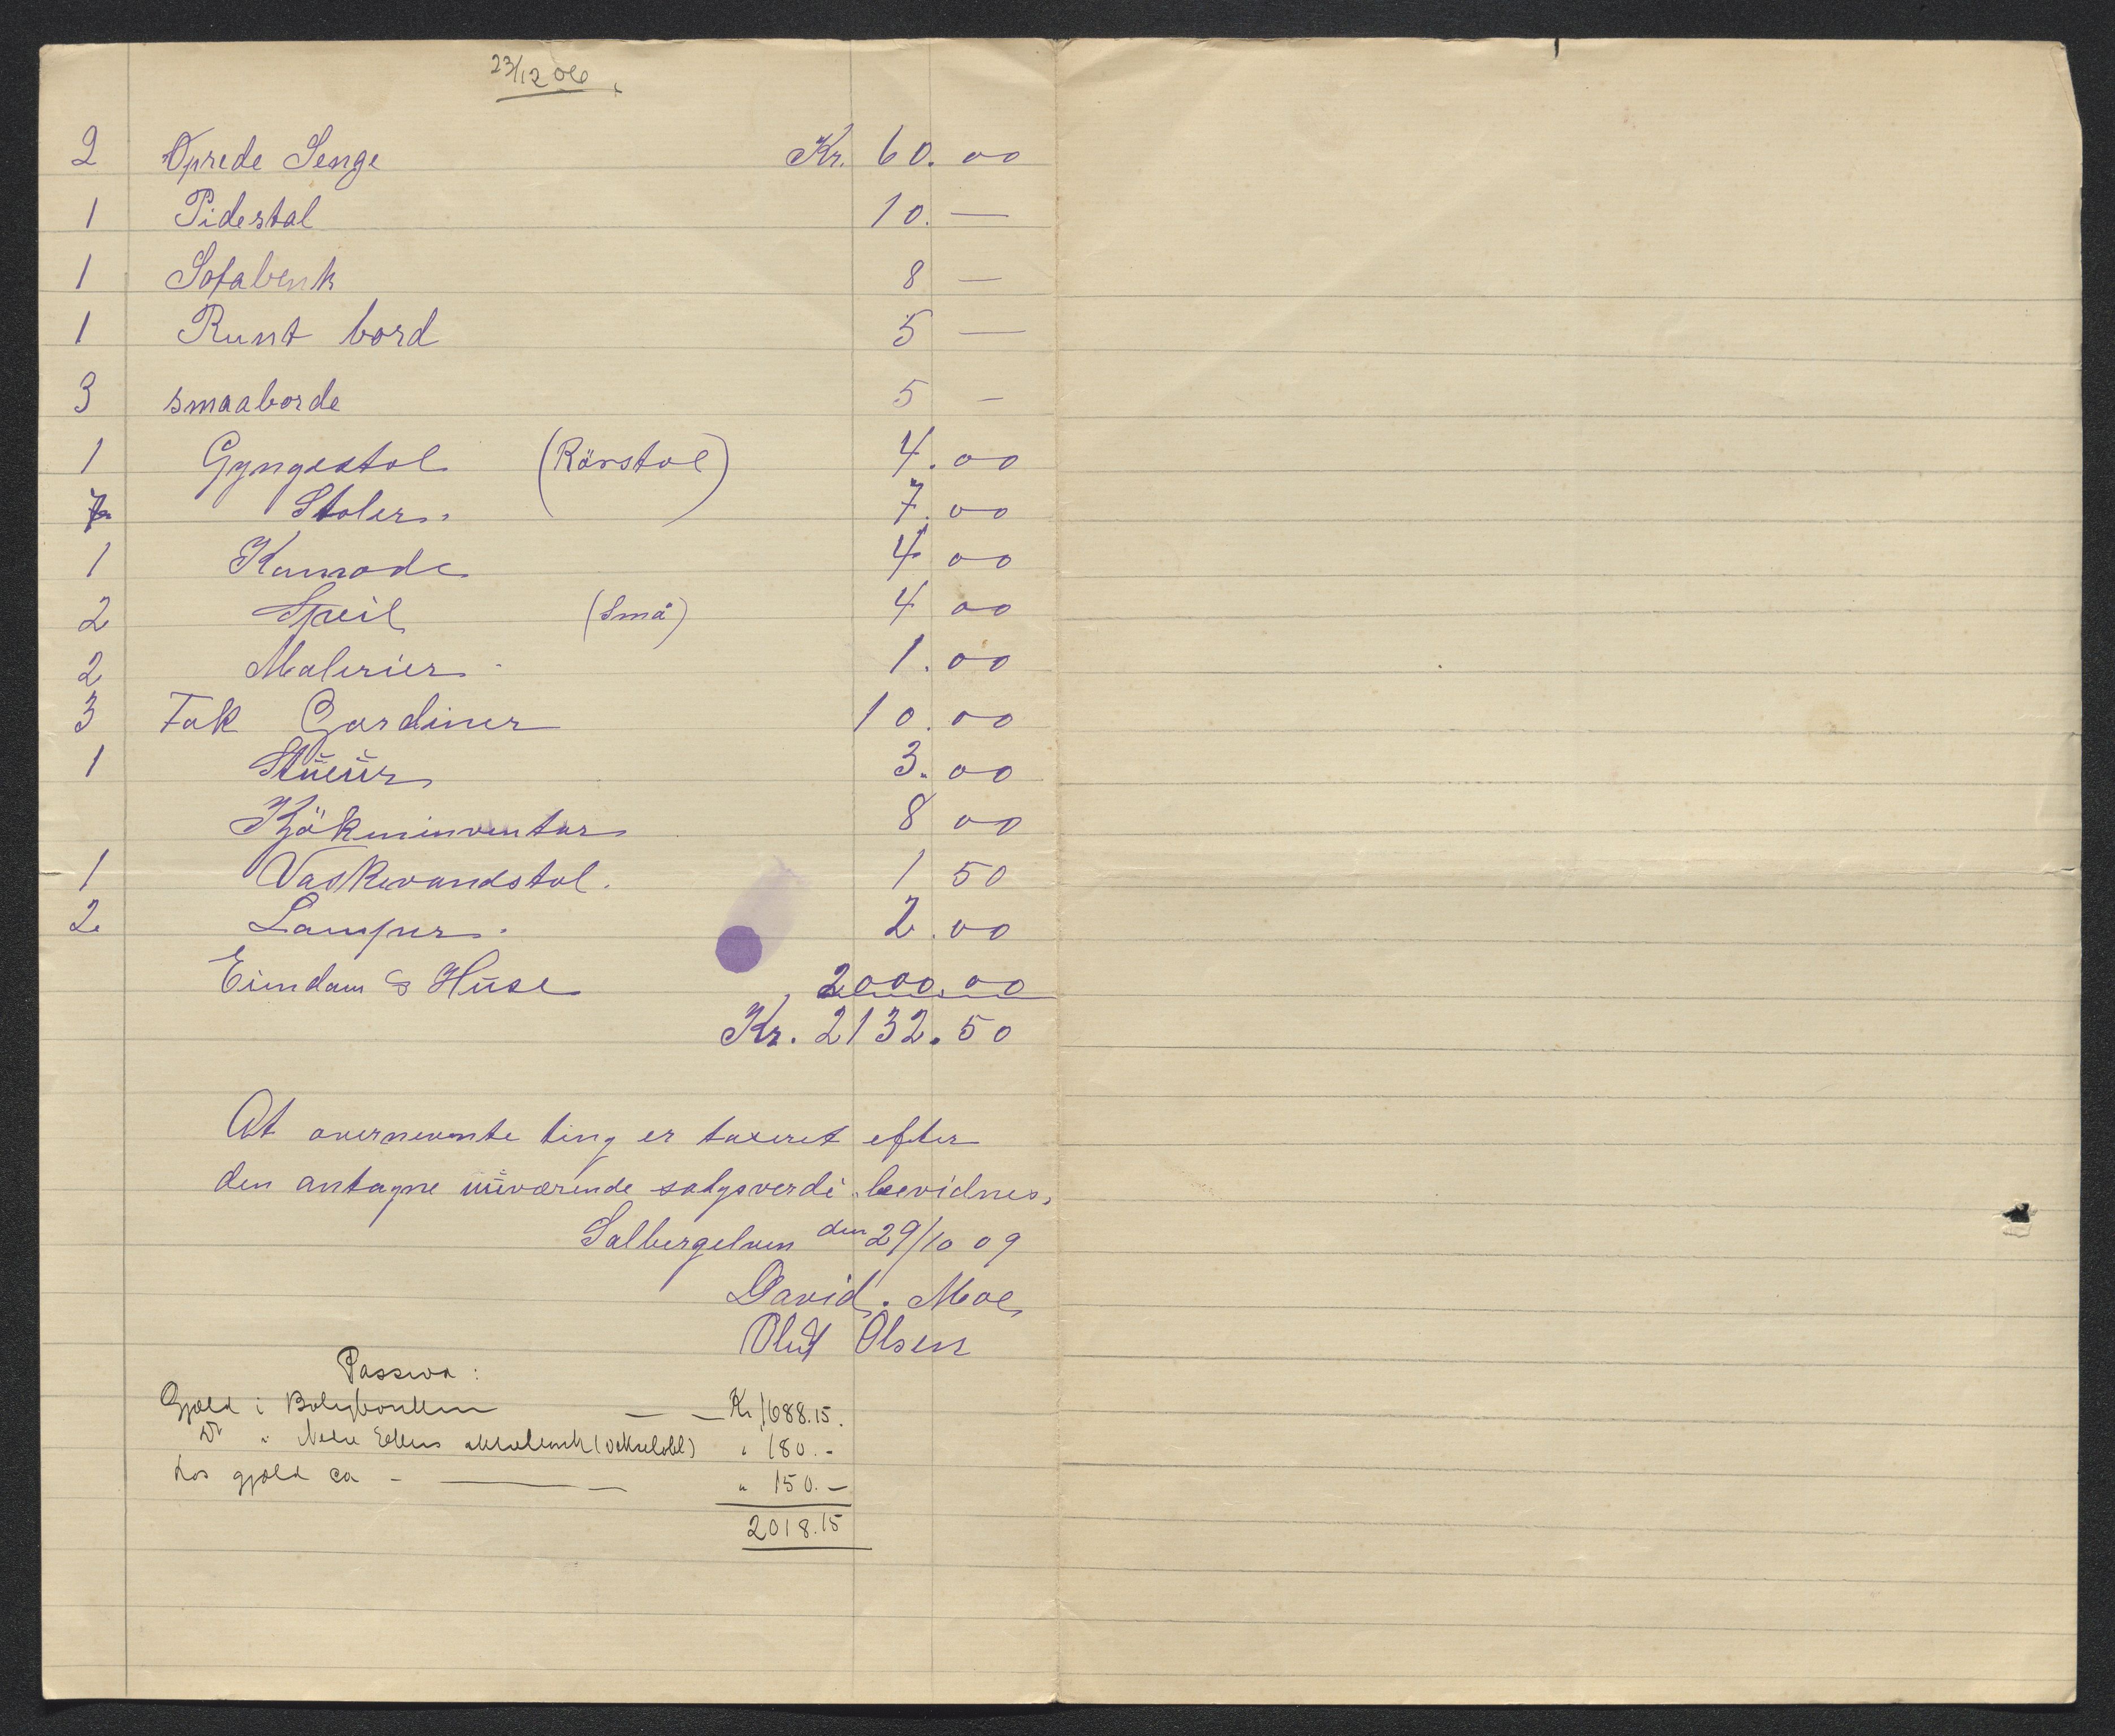 23/12 06
2 Oprede Senge Kr. 60. 00
1 Pidestal 10. —
1 Sofabenk 8 —
1 Runt bord 5 —
3 smaaborde 5 —
1 Gyngestol (Rörstol) 4. 00
7 Stoler. 7. 00
1 Kamode 4 00
2 Speil (Små) 4 00
2 Malerier 1. 00
3 Fak Gardiner 10. 00
1 Stueur 3. 00
Kjökeninventar 8 00
1 Vaskevandstol. 1 50
2 Lamper. 2. 00
Eiendam & Huse 2000.00
Kr. 2132.50
At overnevnte ting er taxeret efter
den antagne nuværende salgsverdi bevidnes,
Solbergelven den 29/10 09
David. Moe
Oluf Olsen
Passiva:
Gjæld i Boligbanken — — Kr 1688.15.
Do " Nedre Eekers (Vekselobl) " 180. -
Løs gjæld ca - — — " 150. —
2018.15